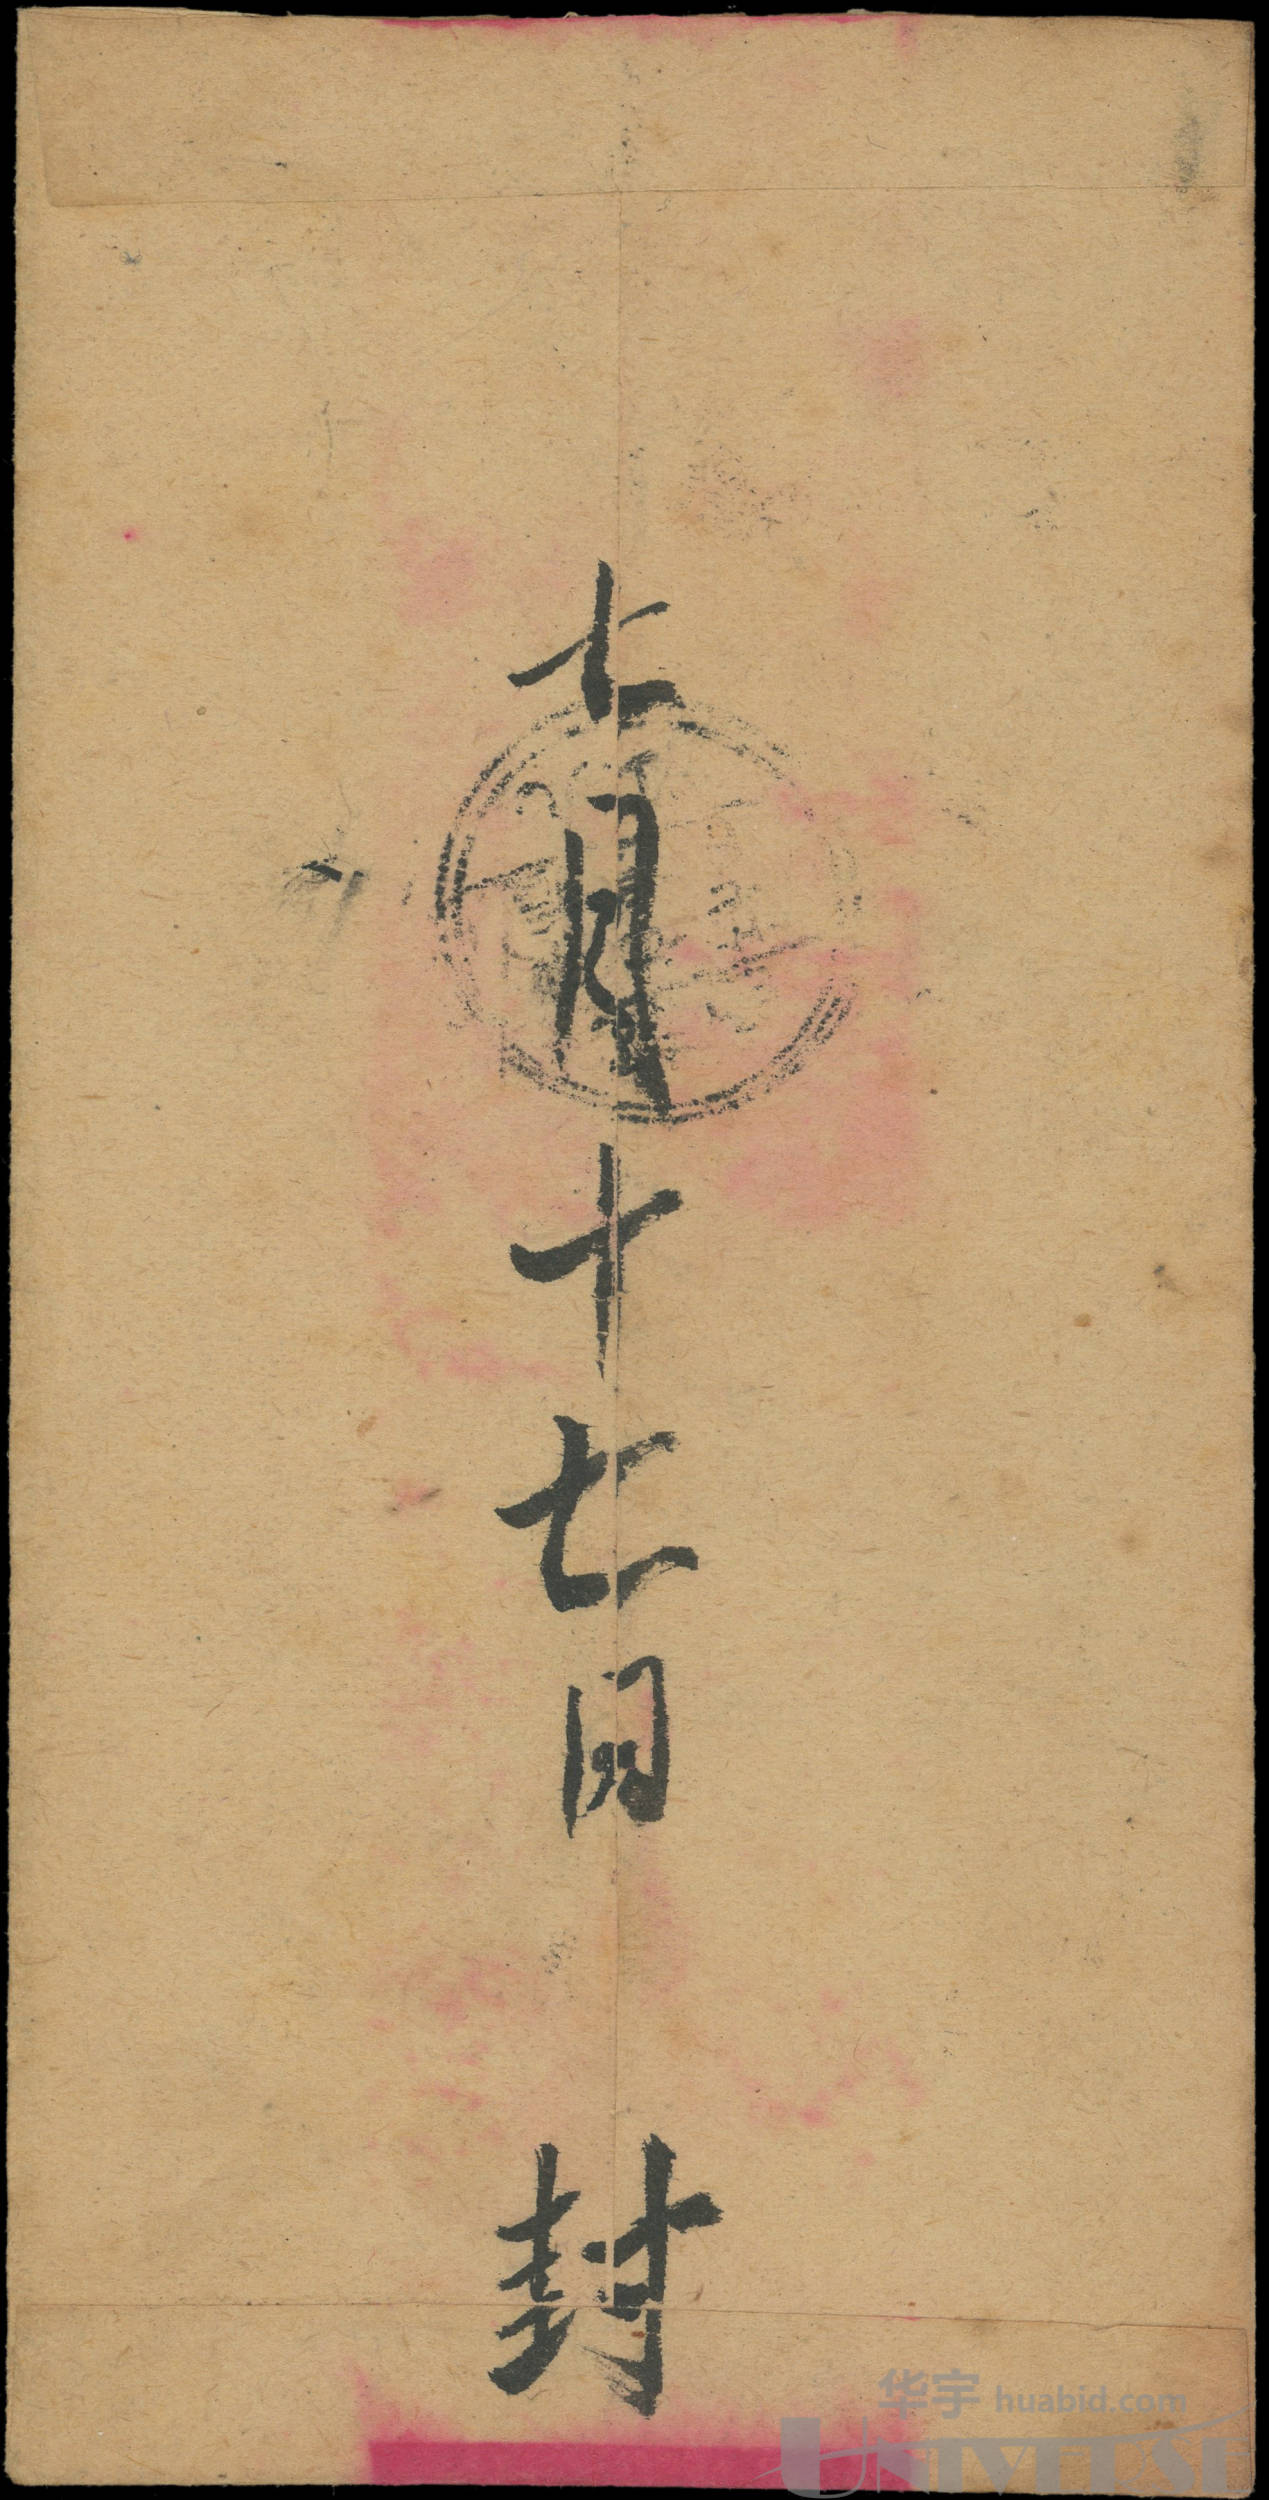 七月十七日
封
华宇 huabid.com
UNIVERSE